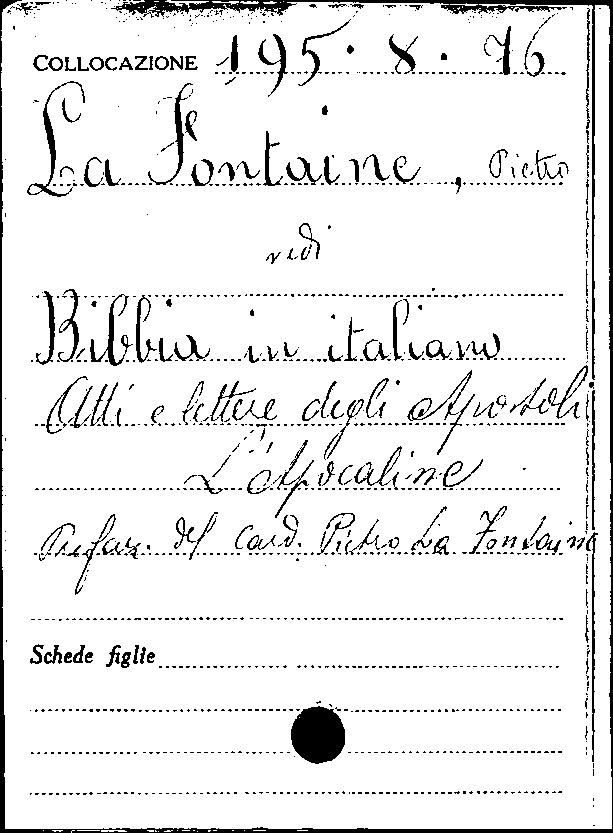 COLLOCAZIONE 195 · 8 · 76
La Fontaine, Pietro
vedi
Bibbia in italiano
Atti e lettere degli Apostoli
L'Apocalisse
Prefaz. del Card. Pietro La Fontaine
Schede figlie